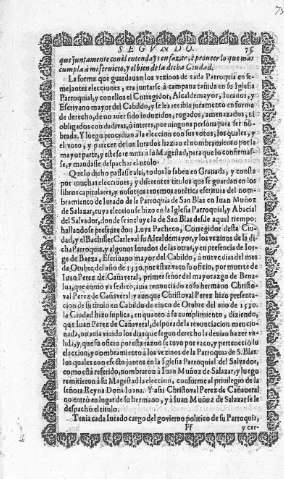 SEGVNDO. 75
que juntamente con él entendays en hazer, è proueer lo que mas
cumpla à mi seruicio, y el bien de la dicha Ciudad.
La forma que guardauan los vezinos de cada Parroquia en se-
mejantes elecciones, era juntarse à campana tañida en su Iglesia
Parroquial, y con ellos el Corregidor, Alcalde mayor, Iurados, y
Escriuano mayor del Cabildo, y se les recibia juramento en forma
de derecho, de no auer sido inducidos, rogados, amenazados, ni
obligados con dadiuas, ò interes, por ninguna persona para ser
Y luego procedian à la eleccion con sus votos, los quales, y
el voto, y parecer de los Iurados hazian el nombramiento por la
mayor parte, y este se remitia à su Magestad, para que lo confirmasse,
y mandasse despachar el titulo.
Que lo dicho passasse assi, todos lo saben en Granada, y consta
por muchas elecciones, y diferentes titulos que se guardan en los
libros capitulares, y nosotros tenemos escritura efectiua del nom-
bramiento de Iurado de la Parroquia de San Blas en Iuan Muñoz
de Salazar, cuya eleccion se hizo en la Iglesia Parroquial, y Abacial
del Saluador, donde se sirue la de San Blas desde aquel tiempo:
hallandose presentes don Pacheco, Corregidor desta Ciu-
dad, y el Bachiller su Alcalde mayor, y los vezinos de la di-
cha Parroquia, y algunos Iurados de las otras, y en presencia de Ior-
ge de Baeza, Escriuano mayor del Cabildo, à nueue dias del mes
de Otubre del año de 1530. por estar vaco su oficio, por muerte de
Iuan Perez de Cañaueral, primero señor del mayorazgo de Bena-
lua, que como ya se dixo, auia renunciado en su hermano Christo-
ual Perez de Cañaueral y aunque Christoual Perez hizo presenta-
cion de su titulo en Cabildo de cinco de Otubre del año de 1530.
la Ciudad hizo suplica, en quanto à su cumplimiento, diziendo,
que Iuan Perez de Cañaueral, despues de la renunciacion murio
no auia viuido los dias que segun derecho le deuian hazer va-
lida, y que su oficio por esta razon se tuuo por vaco, y pertenecia su
eleccion, y nombramiento à los vezinos de la Parroquia de S. Blas
los quales con efecto juntos en la Iglesia Parroquial del Saluador,
como està referido, nombraron à Iuan Muñoz de Salazar, y luego
remitieron à su Magestad la eleccion, conforme al priuilegio de la
señora Reyna Doña Iuana. Y assi Christoual Perez de Cañaueral
no entrò en lugar de su hermano, y à Iuan Muñoz de Salazar se le
despachò el titulo.
Tenia cada Iurado cargo del gouierno politico de su Parroquia,
y cer-